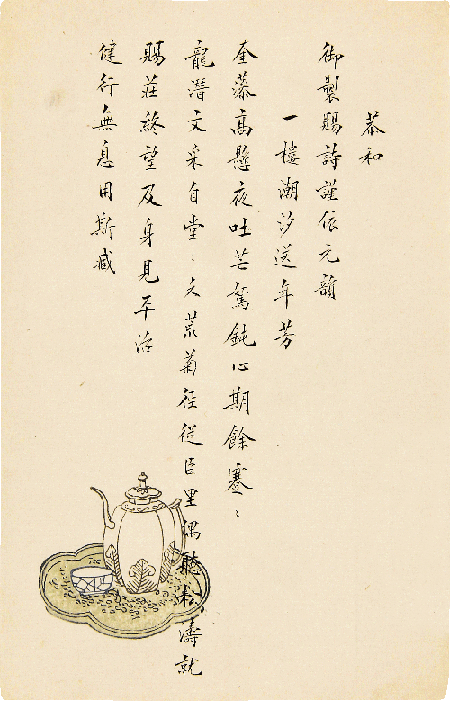 恭和
御製賜詩謹依元韻
一樓潮汐送年芳
奎藻高懸夜吐芒駑鈍心期餘蹇〻
龍潛文采自堂〻久荒菊徑從臣里偶聽松濤就
賜莊終望及身見平治
健行無息用斯臧